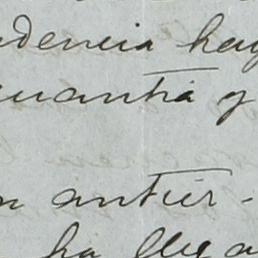 adencia hay
cuantia y
n antier-
ha llega